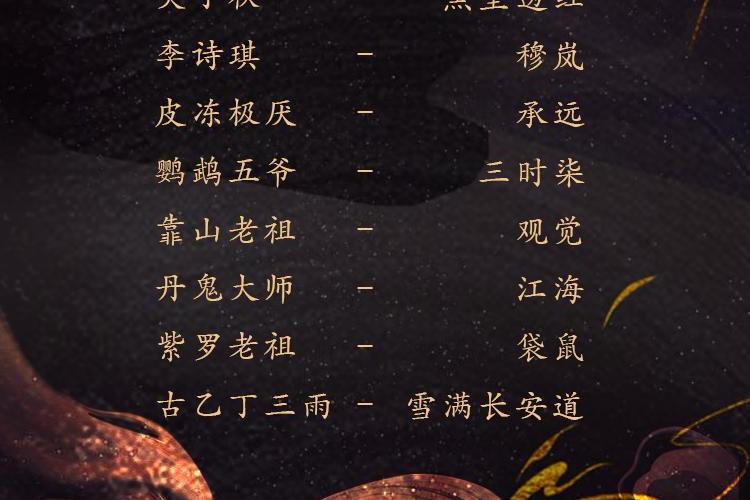 李诗琪 - 穆岚
皮冻极厌 - 承远
鹦鹉五爷 - 三时柒
靠山老祖 - 观觉
丹鬼大师 - 江海
紫罗老祖 - 袋鼠
古乙丁三雨 - 雪满长安道